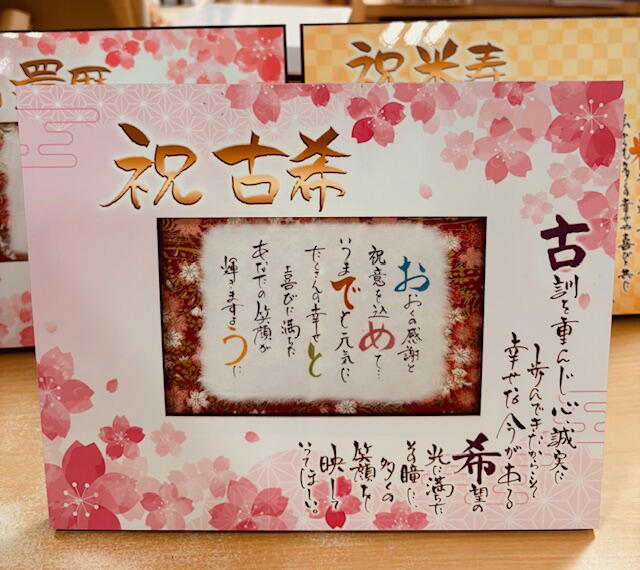 還暦
祝米寿
祝 古希
おおくの感謝と
祝意を込めて…
いつまでと元気に
たくさんの幸せと
喜びに満ちた
あなたの笑顔が
輝きますように
古訓を重んじ心、誠実に
歩んできたからこそ
幸せな今がある。
希望の
光に満ちた
その瞳に…
多くの
笑顔を
映して
いってほしい。